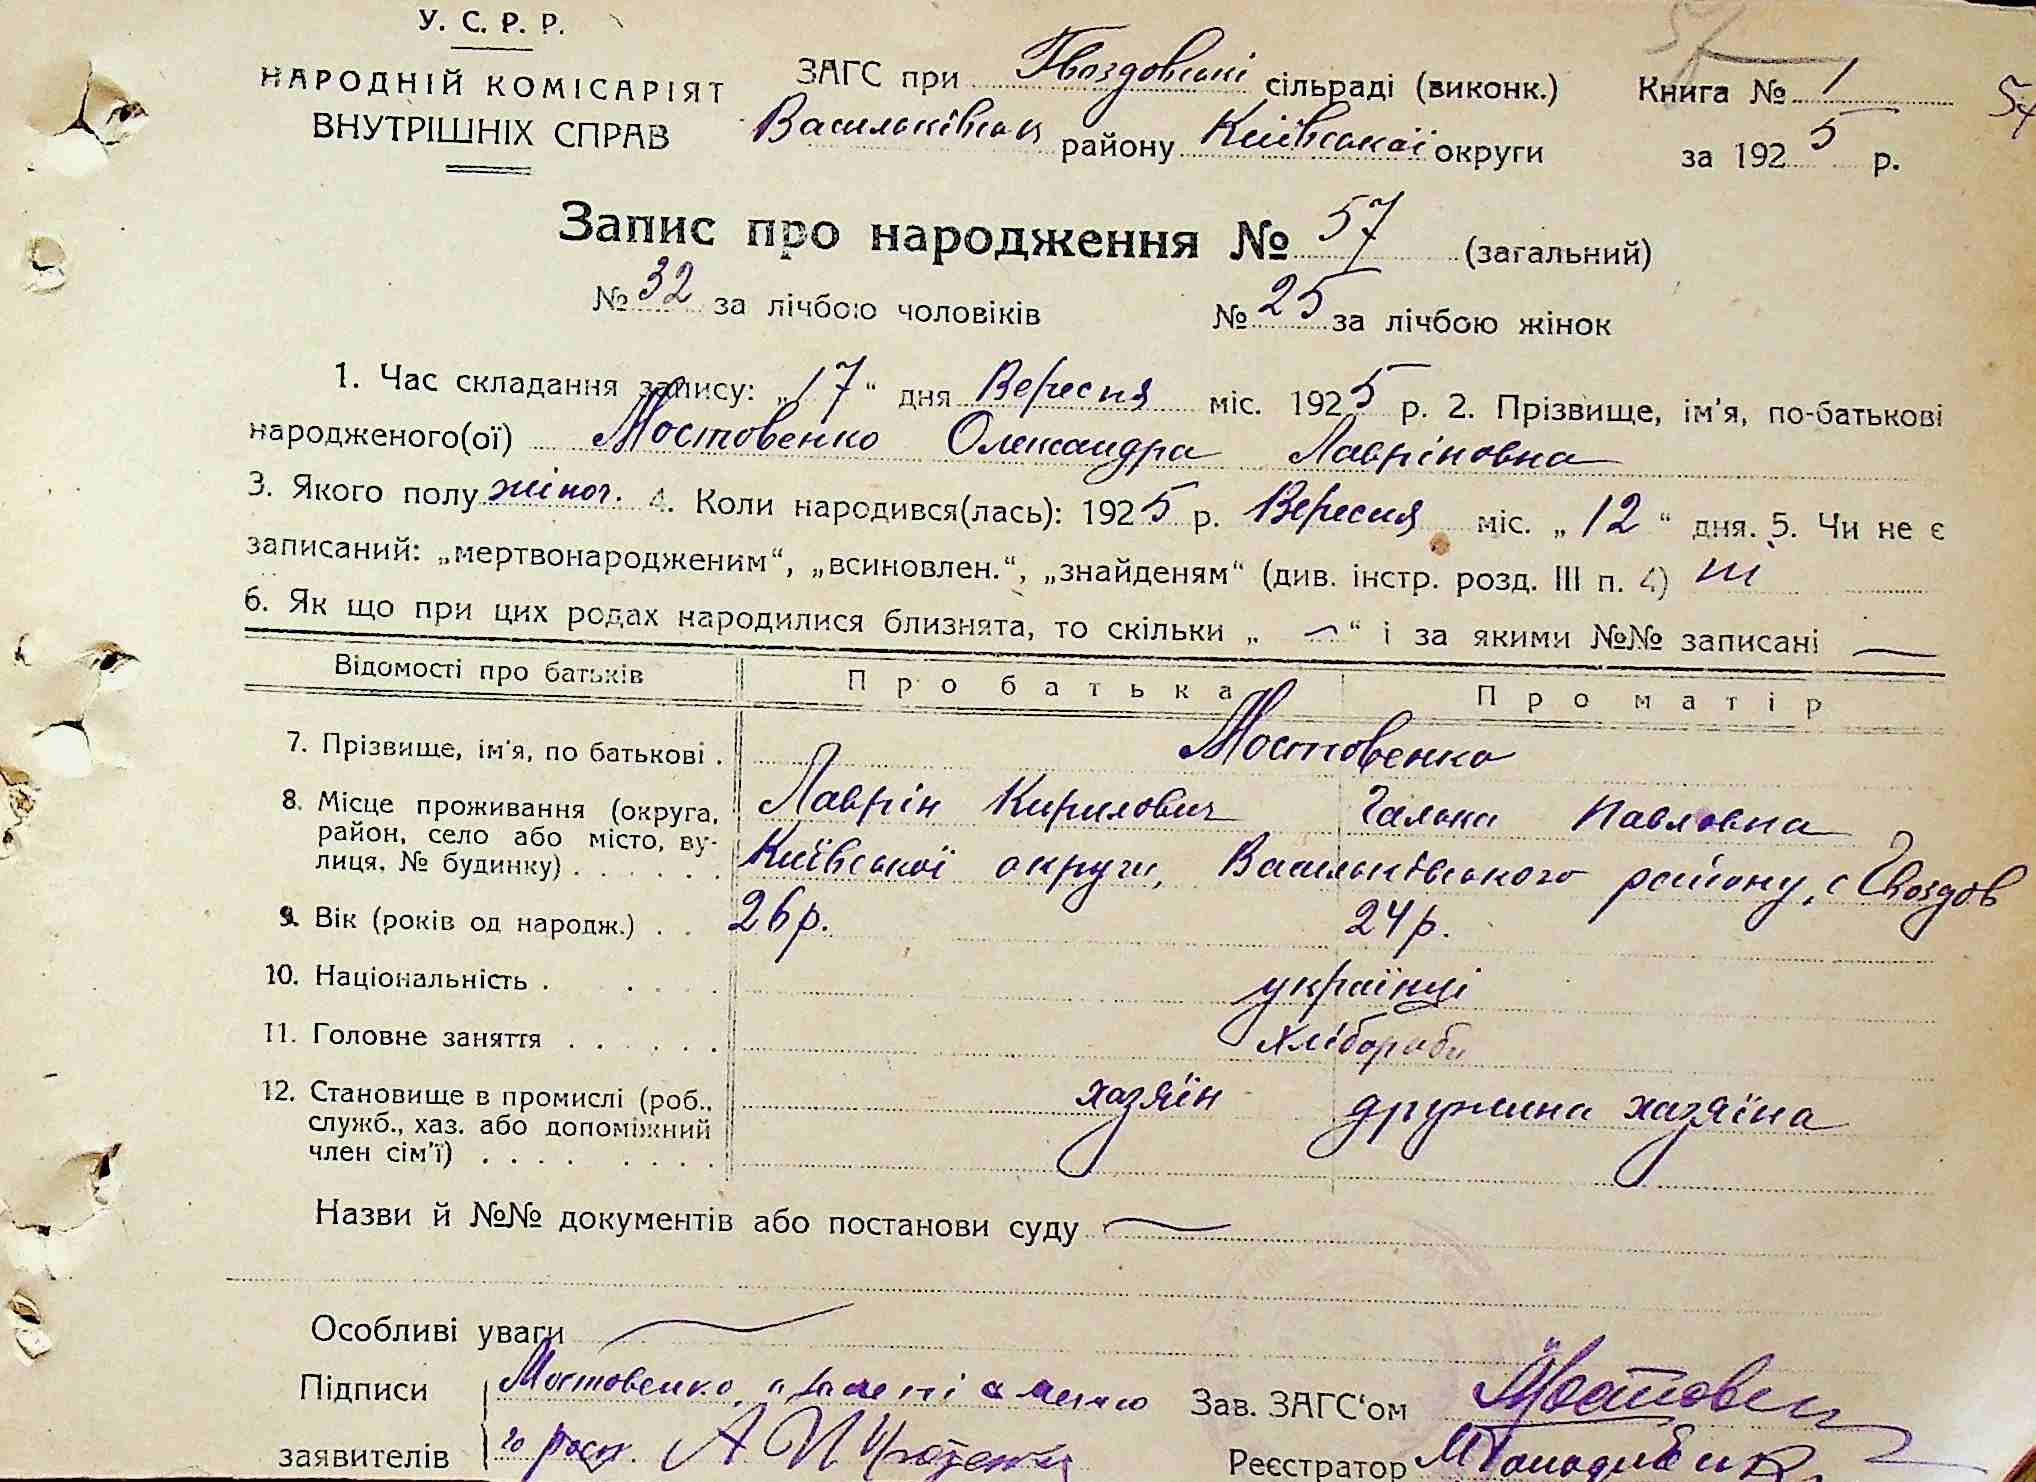 У. С. Р. Р.
НАРОДНІЙ КОМІСАРІЯТ
ВНУТРІШНІХ СПРАВ
ЗАГС при Гвоздовські сільраді (виконк.)
Васильківськ району Київської округи
Книга № 1
за 1925 р.
57
57
Запис про народження № 57 (загальний)
№ 32 за лічбою чоловіків № 25 за лічбою жінок
1. Час складання запису: „17“ дня Вересня міс. 1925 р. 2. Прізвище, ім'я, по-батькові
народженого(ої) Мостовенко Олександра Лавріновна
3. Якого полу жіноч. 4. Коли народився(лась): 1925 р. Вересня міс. „12“ дня. 5. Чи не є
записаний: „мертвонародженим“, „всиновлен.“, „знайденям“ (див. інстр. розд. III п. 4) ні
6. Як що при цих родах народилися близнята, то скільки „ — “ і за якими №№ записані —
Відомості про батьків Про батька Про матір
7. Прізвище, ім'я, по батькові . Мостовенко
Лаврін Кирилович Галька Павловна
8. Місце проживання (округа,
район, село або місто, ву-
лиця, № будинку) . . . . . . Київської округи, Васильківського району, с Гвоздов
9. Вік (років од народж.) . . 26 р. 24 р.
10. Національність . . . . . українці
11. Головне заняття . . . . . . хлібороби
12. Становище в промислі (роб.,
служб., хаз. або допоміжний
член сім'ї) . . . . . . . . хазяїн дружина хазяїна
Назви й №№ документів або постанови суду —
Особливі уваги —
Підписи Мостовенко, а
заявителів го росп. А
Зав. ЗАГС‘ом
Реєстратор